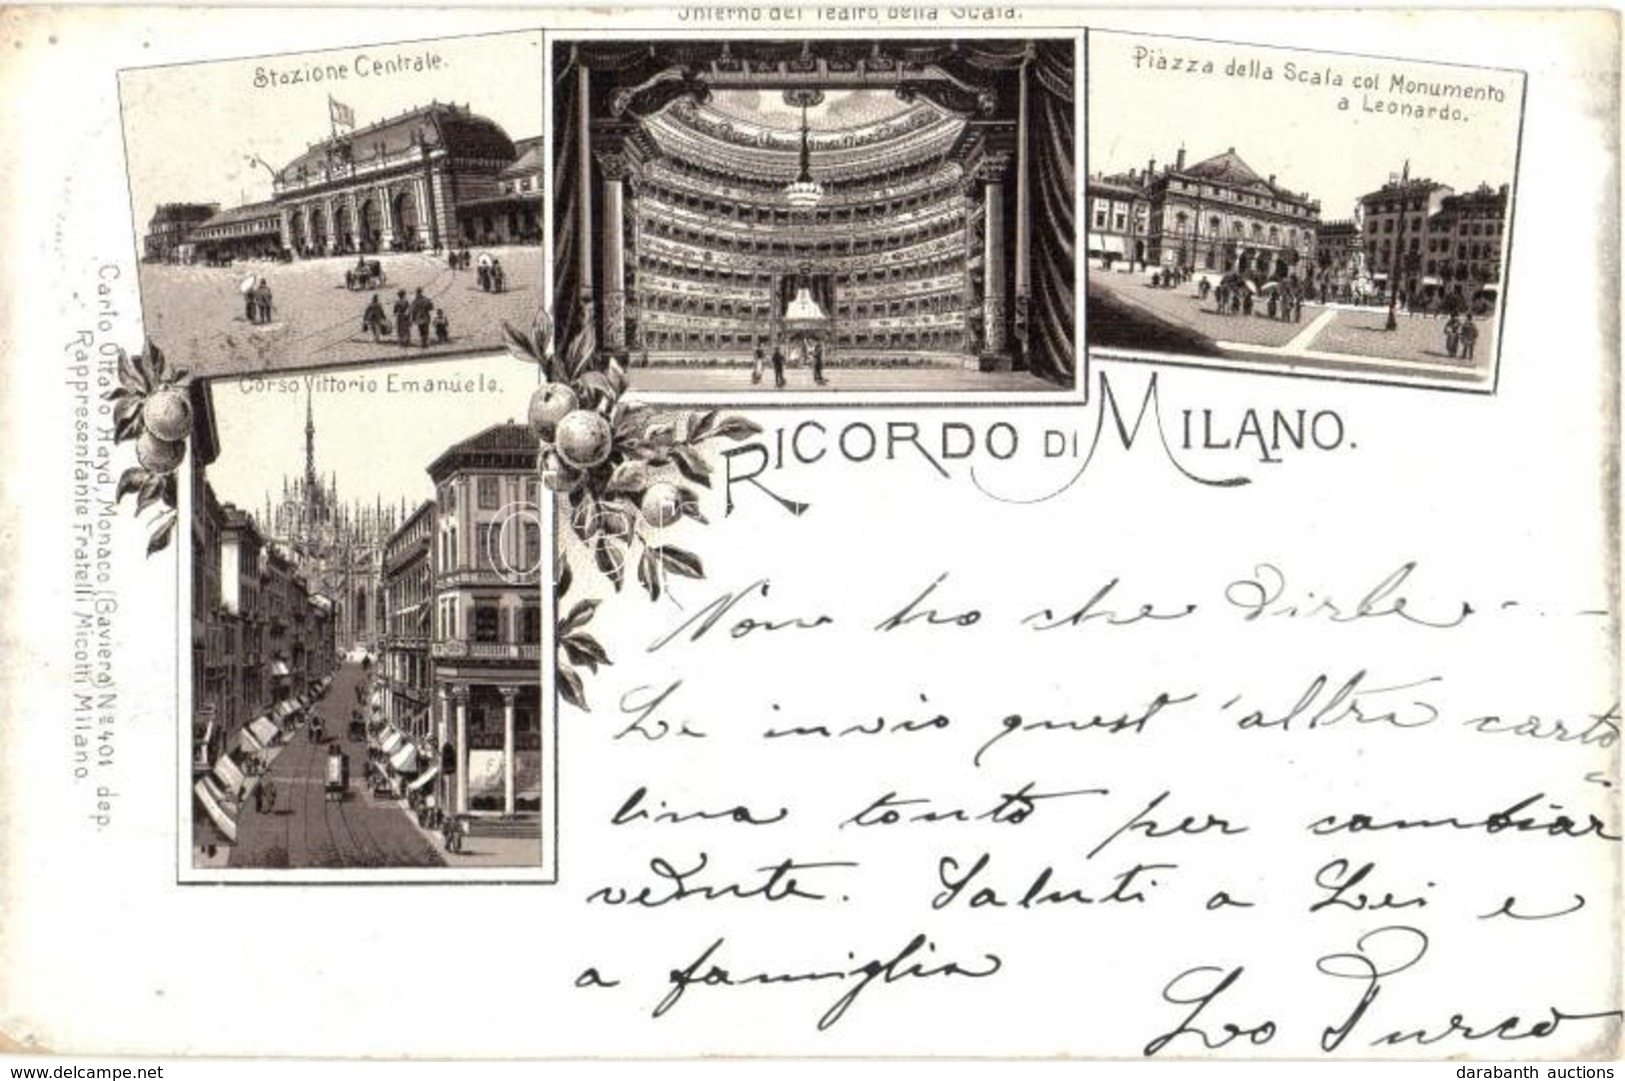 Interno del Teatro della Scala.
Stazione Centrale.
Piazza della Scala col Monumento
a Leonardo.
Corso Vittorio Emanuele.
RICORDO DI MILANO.
Carto Ottavo Hayd, Monaco (Baviera) Nº 401 dep.
Rappresentante Fratelli Micotti Milano.
Non ho che dirle . - - —
Le invio quest'altra carto
lina tanto per cambiar
vedute. Saluti a Lei e
a famiglia
Lo
www.delcampe.net
darabanth auctions